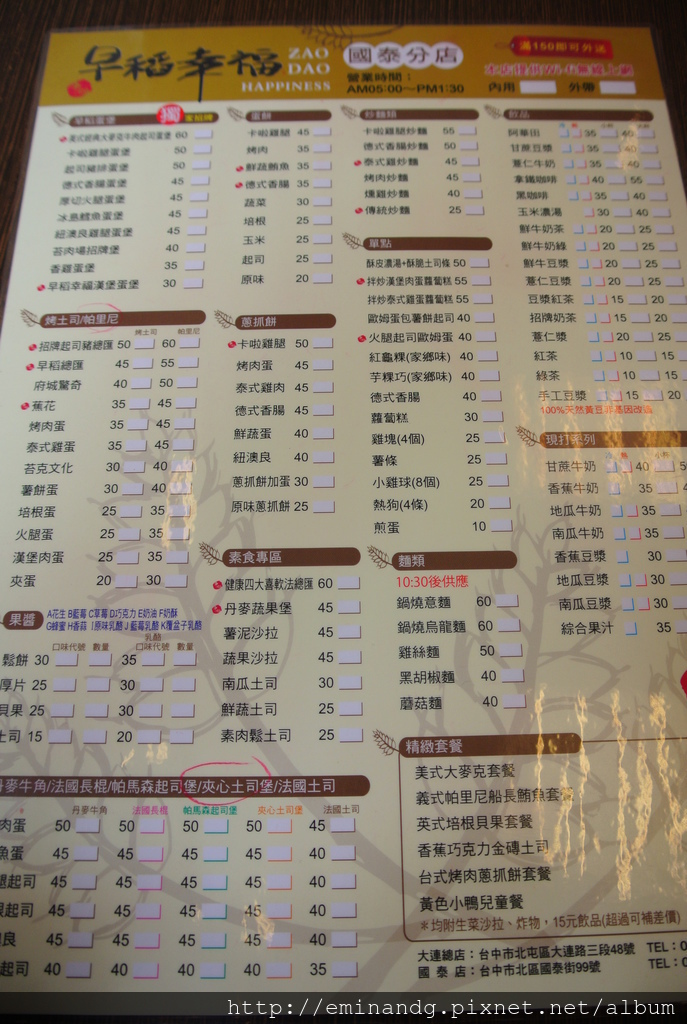 早稻幸福
ZAO
DAO
HAPPINESS
國泰分店
營業時間：
AM05:00~PM1:30
滿150即可外送
本店提供Wi-Fi無線上網
內用 外帶
早稻蛋堡 獨 家招牌
美式經典大麥克牛肉起司蛋堡 60
卡啦雞腿蛋堡 50
起司豬排蛋堡 50
德式香腸蛋堡 45
厚切火腿蛋堡 45
冰島鱈魚蛋堡 45
紐澳良雞腿蛋堡 45
苔肉場招牌堡 40
香雞蛋堡 35
早稻幸福漢堡蛋堡 30
蛋餅
卡啦雞腿 45
烤肉 35
鮮蔬鮪魚 35
德式香腸 35
蔬菜 30
培根 25
玉米 25
起司 25
原味 20
炒麵類
卡啦雞腿炒麵 55
德式香腸炒麵 50
泰式雞炒麵 45
烤肉炒麵 45
燻雞炒麵 40
傳統炒麵 25
飲品
阿華田 35 40
甘蔗豆漿 35 40
薏仁牛奶 35 40
拿鐵咖啡 40 55
黑咖啡 35 40
玉米濃湯 30 40
鮮牛奶茶 20 25
鮮牛奶綠 20 25
鮮牛豆漿 20 25
薏仁豆漿 20 25
豆漿紅茶 15 20
招牌奶茶 15 20
薏仁漿 20 25
紅茶 10 15
綠茶 10 15
手工豆漿 15 20
100%天然黃豆非基因改造
單點
酥皮濃湯+酥脆土司條 50
拌炒漢堡肉蛋蘿蔔糕 55
拌炒泰式雞蛋蘿蔔糕 55
歐姆蛋包薯餅起司 40
火腿起司歐姆蛋 40
紅龜粿(家鄉味) 40
芋粿巧(家鄉味) 40
德式香腸 40
蘿蔔糕 30
雞塊(4個) 25
薯條 25
小雞球(8個) 25
熱狗(4條) 20
煎蛋 10
烤土司/帕里尼
烤土司 帕里尼
招牌起司豬總匯 50 60
早稻總匯 45 55
府城驚奇 40 50
蕉花 35 45
烤肉蛋 35 45
泰式雞蛋 35 45
苔克文化 30 40
薯餅蛋 30 40
培根蛋 25 35
火腿蛋 25 35
漢堡肉蛋 25 35
夾蛋 20 30
蔥抓餅
卡啦雞腿 50
烤肉蛋 45
泰式雞肉 45
德式香腸 45
鮮蔬蛋 40
紐澳良 40
蔥抓餅加蛋 30
原味蔥抓餅 25
現打系列
甘蔗牛奶 40
香蕉牛奶 35
地瓜牛奶 35
南瓜牛奶 35
香蕉豆漿 30
地瓜豆漿 30
南瓜豆漿 30
綜合果汁 35
素食專區
健康四大喜軟法總匯 60
丹麥蔬果堡 45
薯泥沙拉 45
蔬果沙拉 45
南瓜土司 30
鮮蔬土司 25
素肉鬆土司 25
麵類
10:30後供應
鍋燒意麵 60
鍋燒烏龍麵 60
雞絲麵 50
黑胡椒麵 40
蘑菇麵 40
果醬
A花生 B藍莓 C草莓 D巧克力 E奶油 F奶酥
G蜂蜜 H香蒜 I原味乳酪 J藍莓乳酪 K覆盆子乳酪
乳酪
口味代號 數量 口味代號 數量
鬆餅 30 35
厚片 25 30
貝果 25 30
土司 15 20
丹麥牛角/法國長棍/帕馬森起司堡/夾心土司堡/法國土司
丹麥牛角 法國長棍 帕馬森起司堡 夾心土司堡 法國土司
肉蛋 50 50 50 50 45
魚蛋 45 45 45 45 40
起司 45 45 45 45 40
起司 45 45 45 45 40
良 45 45 45 45 40
起司 40 40 40 40 35
精緻套餐
美式大麥克套餐
義式帕里尼船長鮪魚套餐
英式培根貝果套餐
香蕉巧克力金磚土司
台式烤肉蔥抓餅套餐
黃色小鴨兒童餐
＊均附生菜沙拉、炸物，15元飲品(超過可補差價)
大連總店：台中市北屯區大連路三段48號 TEL：0
國 泰 店：台中市北區國泰街99號 TEL：0
http://eminandg.pixnet.net/album